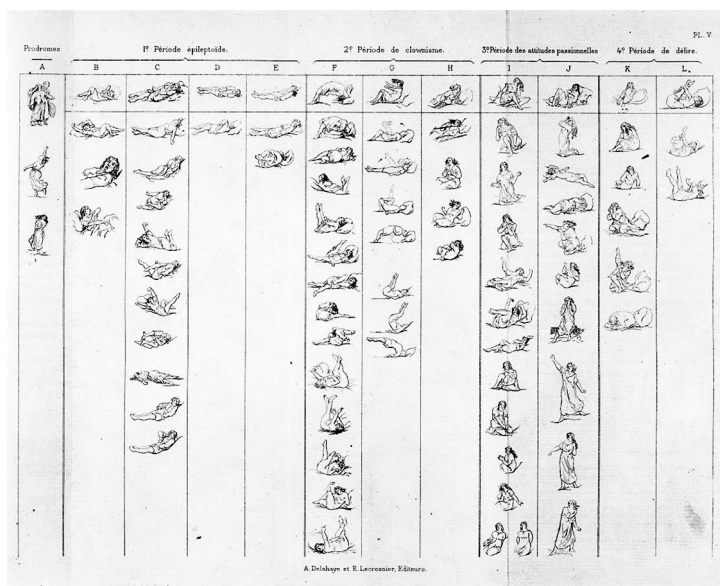 PL. V.
Prodromes 1e Période épileptoïde. 2e Période de clownisme. 3e Période des attitudes passionnelles 4e Période de délire.
A B C D E F G H I J K L.
A. Delahaye et E. Lecrosnier, Editeurs.